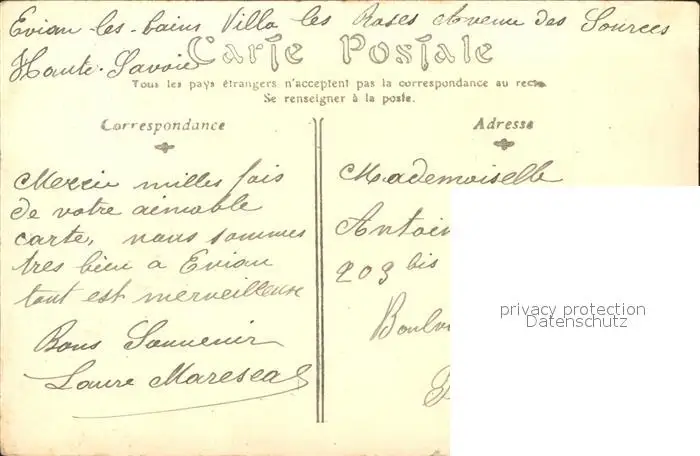 Evian les-bains Villa les Roses Avenue des Sources
Haute-Savoie
Carte Postale
Tous les pays étrangers n'acceptent pas la correspondance au recto
Se renseigner à la poste.
Correspondance
Merçie milles fois
de votre aimable
carte, nous sommes
tres bien a Evian
tout est merveilleuse
Bons Souvenir
Laure
Adresse
Mademoiselle
Antoin
203 bis
Boulv
privacy protection
Datenschutz